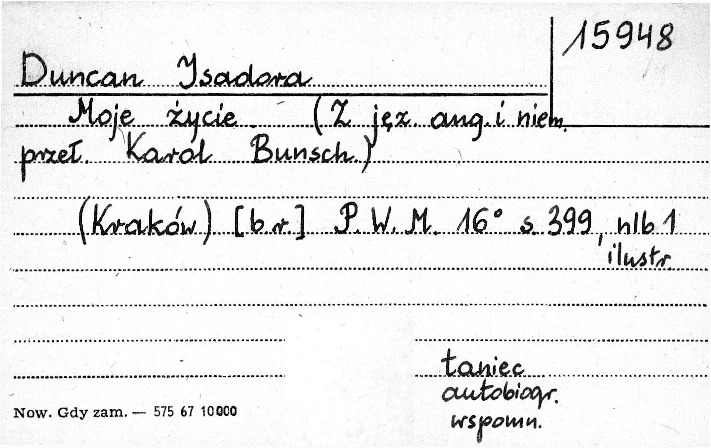 15948
Duncan Isadora
Moje życie. (Z jęz. ang. i niem.
przeł. Karol Bunsch.)
(Kraków) [b.r.] P.W.M. 16° s. 399, nlb 1
ilustr.
taniec
autobiogr.
wspomn.
Now. Gdy zam. — 575 67 10000